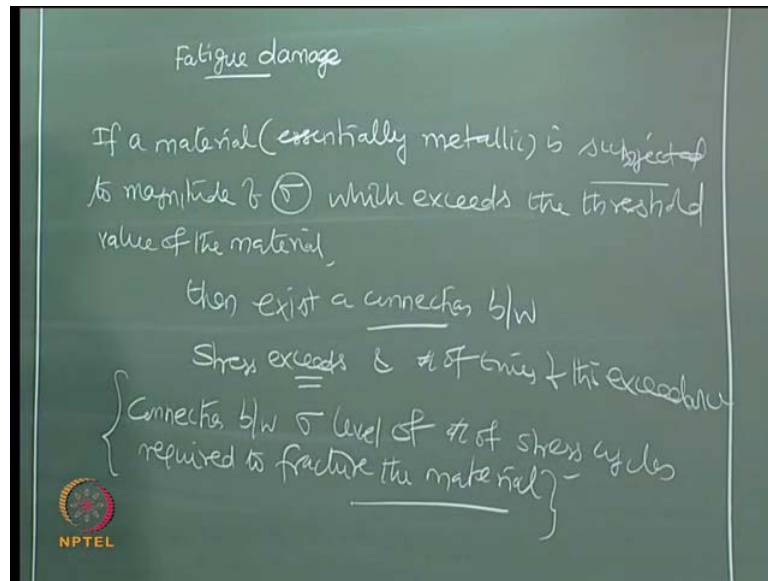 Fatigue damage
If a material (essentially metallic) is subjected
to magnitude of σ which exceeds the threshold
value of the material,
then exist a connection b/w
Stress exceeds & # of times of this exceedance
{Connection b/w σ level of # of stress cycles
required to fracture the material}
NPTEL